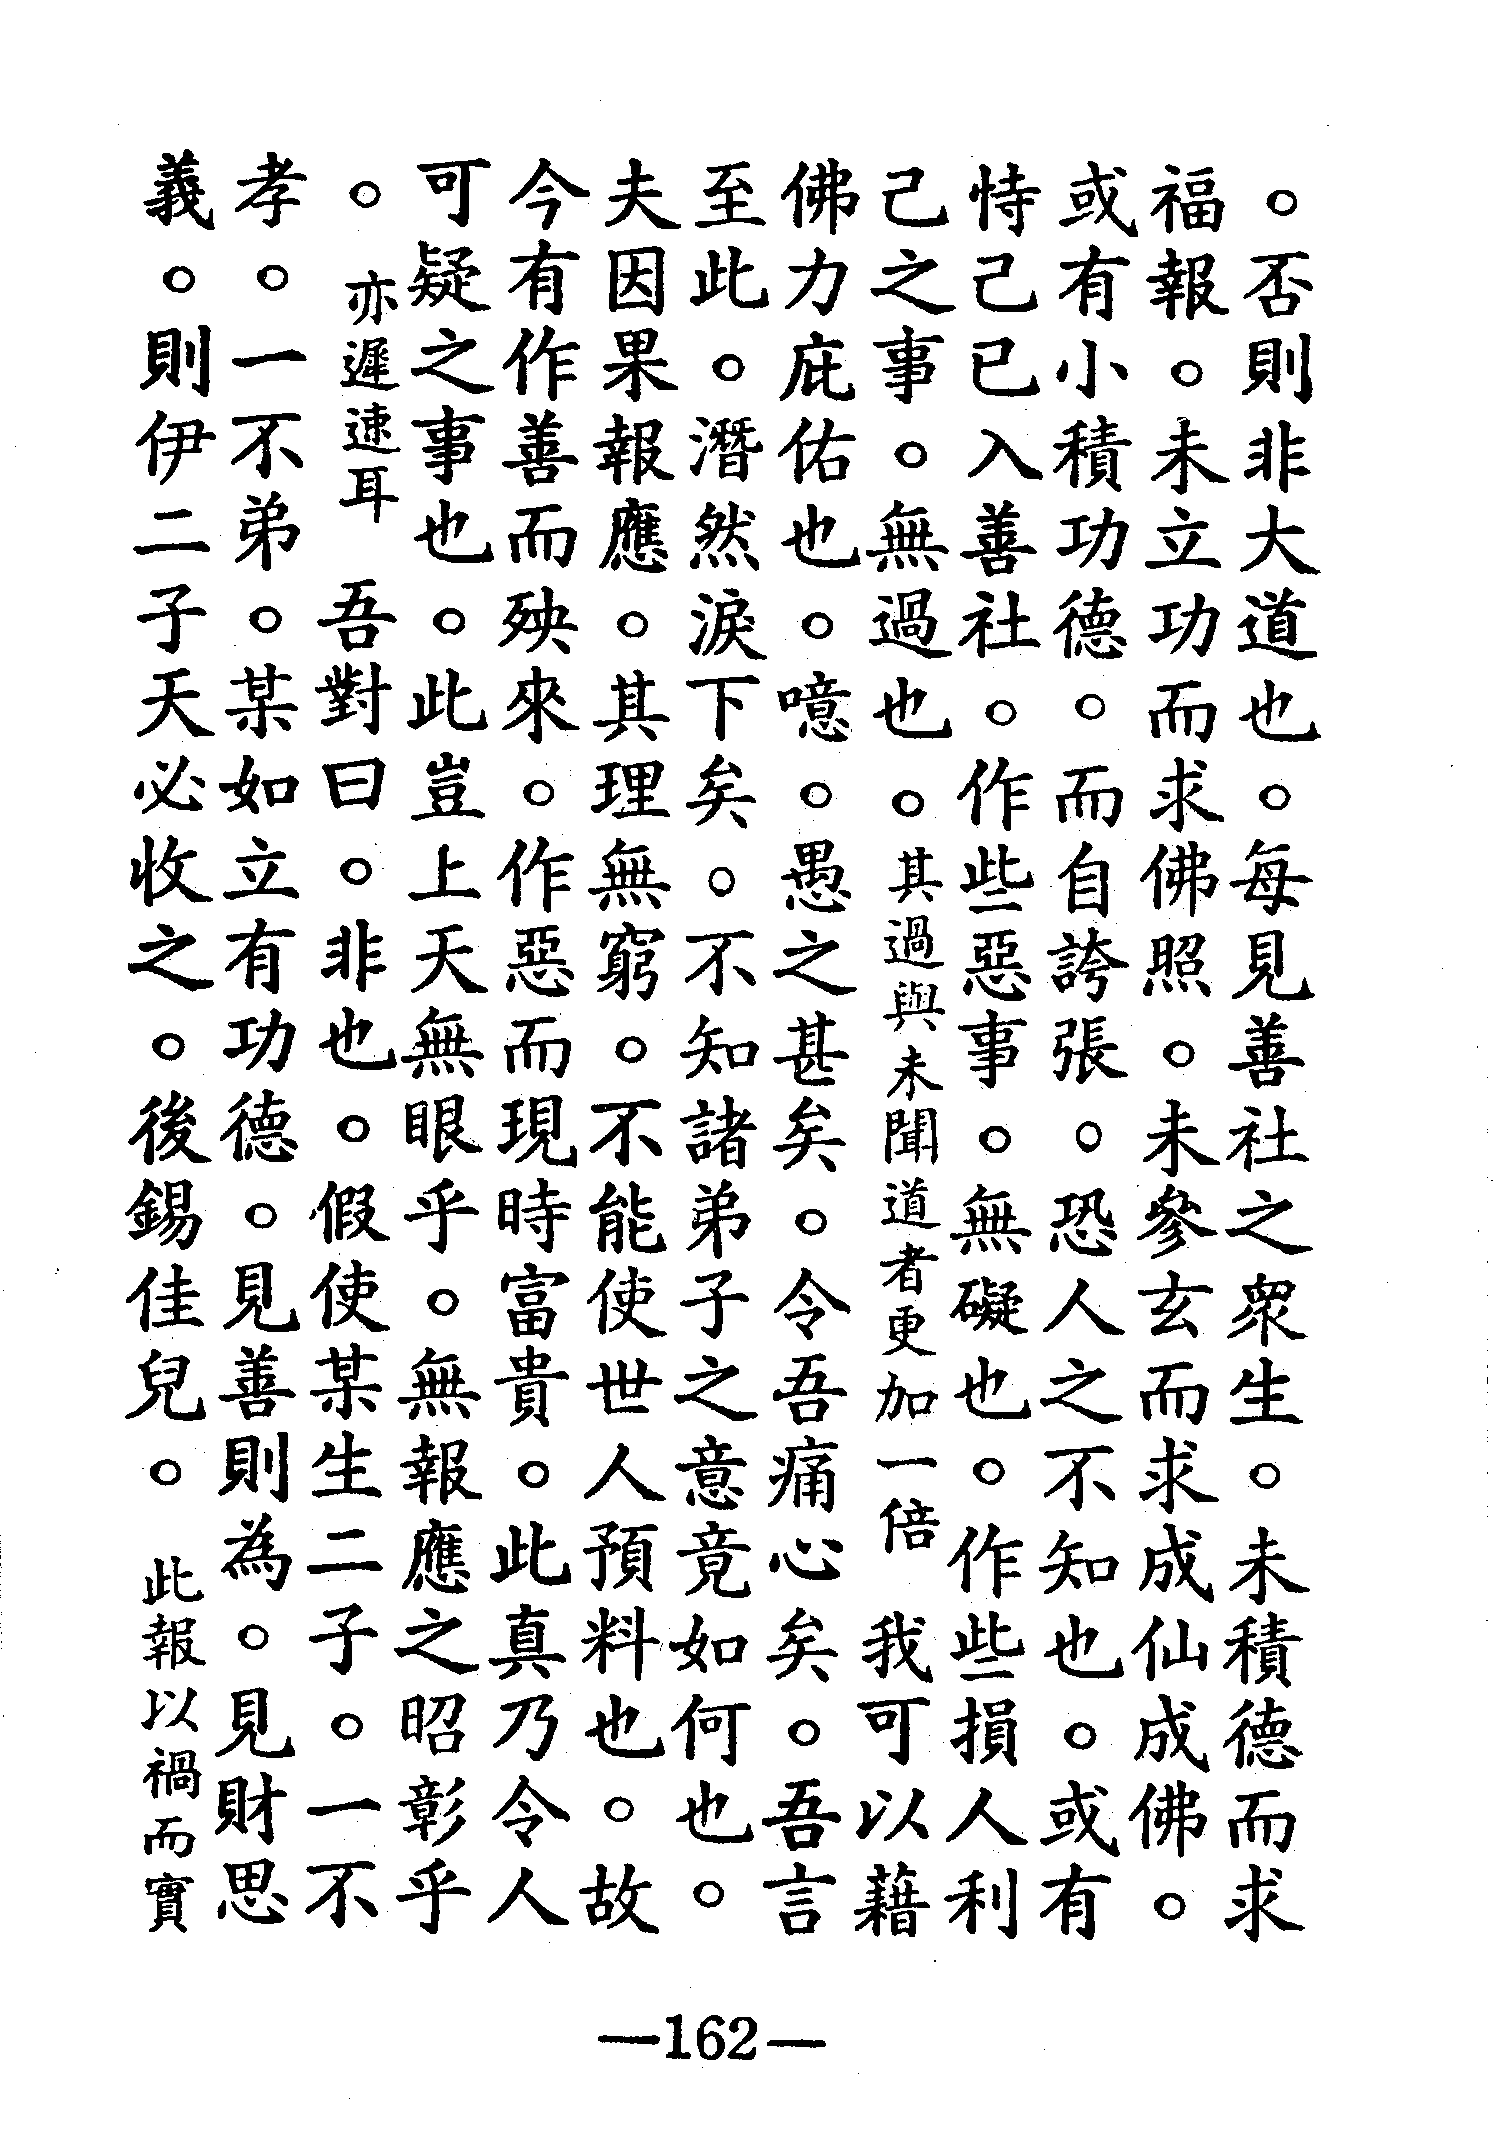 。否則非大道也。每見善社之眾生。未積德而求
福報。未立功而求佛照。未參玄而求成仙成佛。
或有小積功德。而自誇張。恐人之不知也。或有
恃己已入善社。作些惡事。無礙也。作些損人利
己之事。無過也。其過與未聞道者更加一倍 我可以藉
佛力庇佑也。噫。愚之甚矣。令吾痛心矣。吾言
至此。潛然淚下矣。不知諸弟子之意竟如何也。
夫因果報應。其理無窮。不能使世人預料也。故
今有作善而殃來。作惡而現時富貴。此真乃令人
可疑之事也。此豈上天無眼乎。無報應之昭彰乎
。亦遲速耳 吾對曰。非也。假使某生二子。一不
孝。一不弟。某如立有功德。見善則為。見財思
義。則伊二子天必收之。後錫佳兒。此報以禍而實
—162—